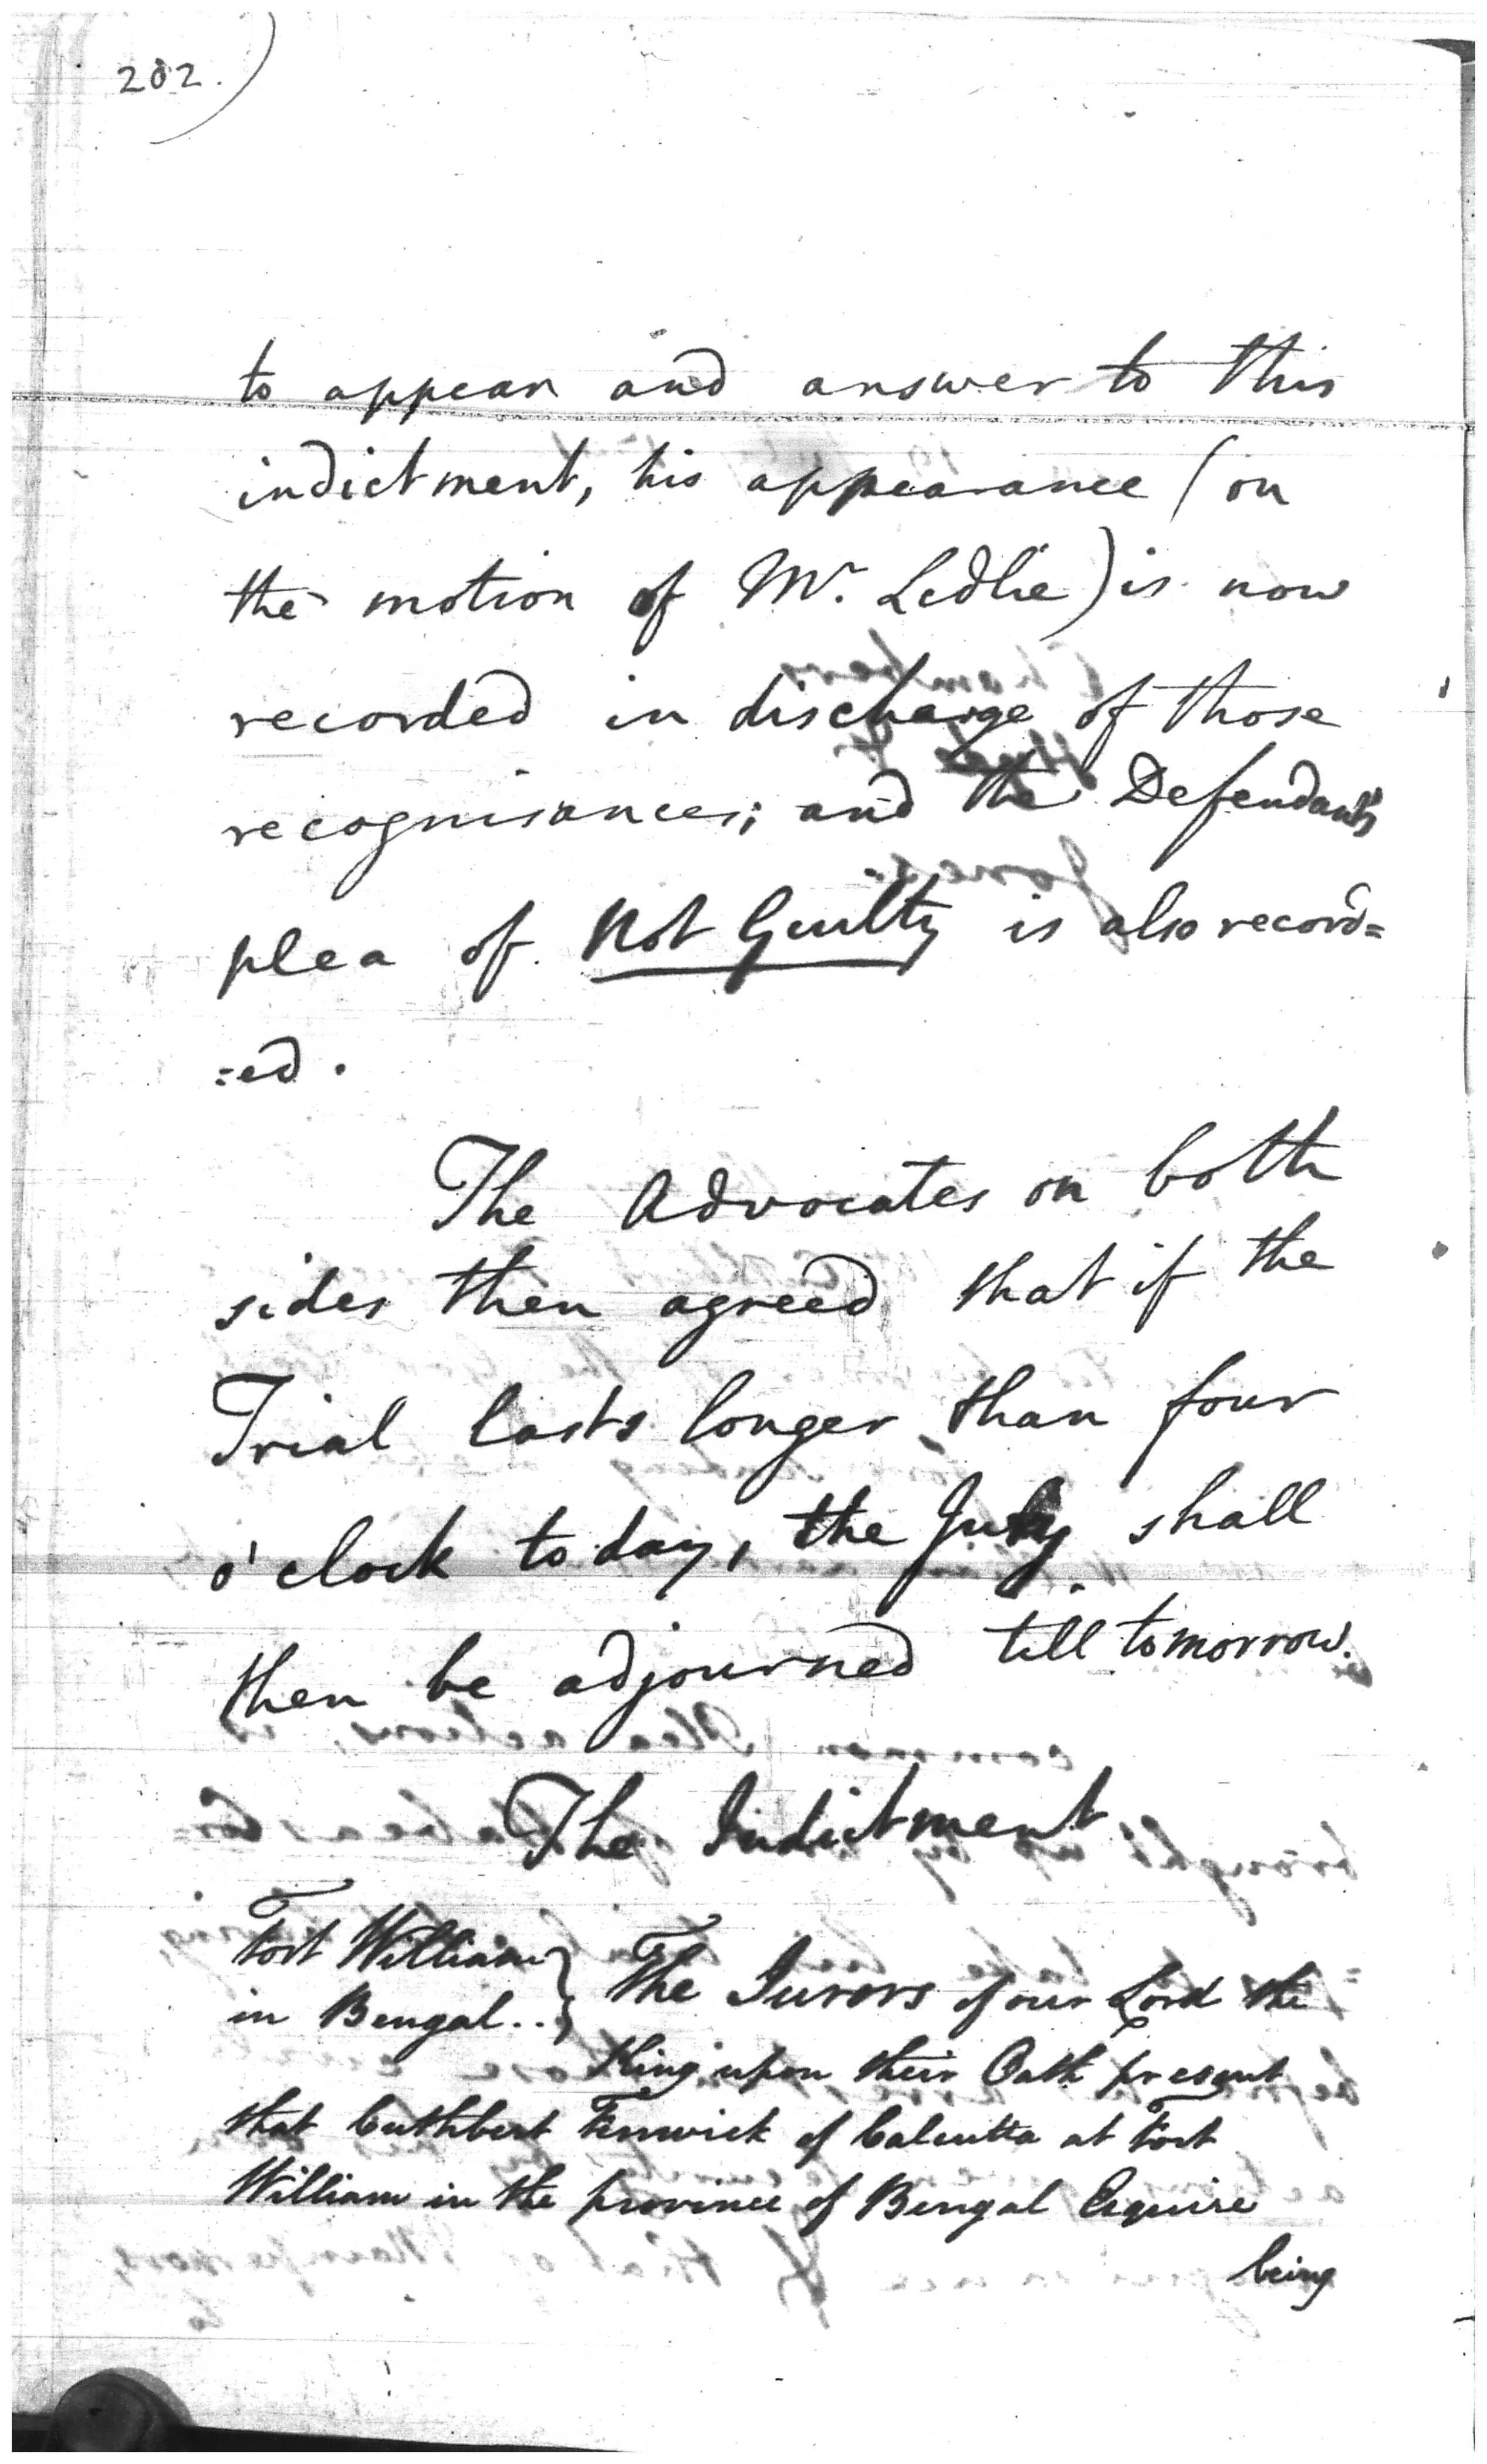 202.)
to appear and answer to this
indictment, his appearance (on
the motion of Mr. Ledlie) is now
recorded in discharge of those
recognisances; and the Defendant's
plea of Not Guilty is also record=
=ed.
The Advocates on both
sides then agreed that if the
Trial lasts longer than four
o'clock to day, the Jury shall
then be adjourned till tomorrow.
The Indictment
Fort William }
in Bengal.. } The Jurors of our Lord the
King upon their Oath present
that Cuthbert Fenwick of Calcutta at Fort
William in the province of Bengal Esquire
being